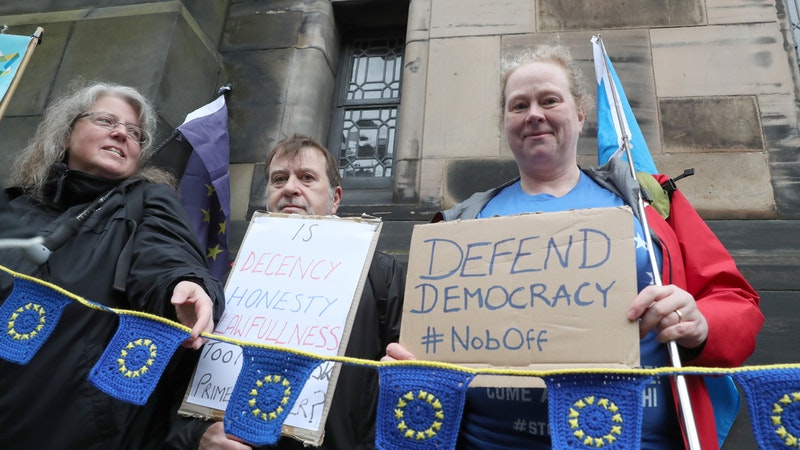 IS
DECENCY
HONESTY
LAWFULLNESS
PRIME
DEFEND
DEMOCRACY
#NobOff
COME